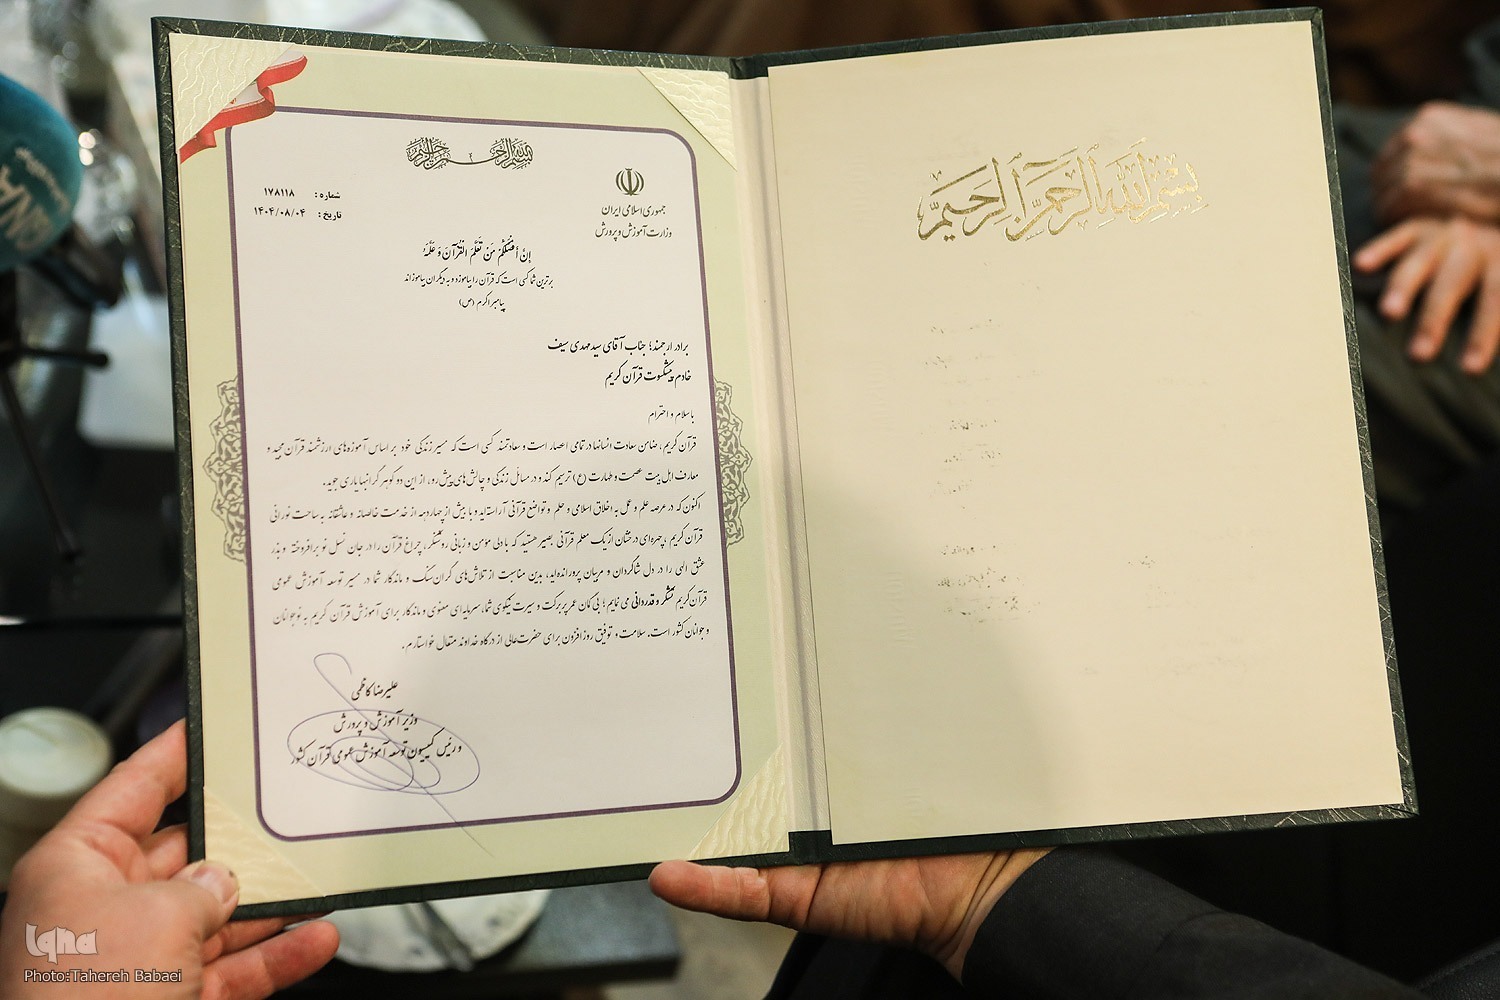 بسم الله الرحمن الرحیم
جمهوری اسلامی ایران
وزارت آموزش و پرورش
شماره : ۱۷۸۱۱۸
تاریخ : ۱۴۰۴/۰۸/۰۴
إنَّ أفضَلَكُمْ مَنْ تَعَلَّمَ القُرآنَ وَ عَلَّمَهُ
برترین شما کسی است که قرآن را بیاموزد و به دیگران بیاموزاند
پیامبر اکرم (ص)
برادر ارجمند؛ جناب آقای سید مهدی سیف
خادم پیشکسوت قرآن کریم
با سلام و احترام
قرآن کریم، ضامن سعادت انسانها در تمامی اعصار است و سعادتمند کسی است که مسیر زندگی خود بر اساس آموزه‌های ارزشمند قرآن مجید و
معارف اهل بیت عصمت و طهارت (ع) ترسیم کند و در مسائل زندگی و چالش‌های پیش‌رو، از این دو گوهر گرانبها یاری جوید.
اکنون که در عرصه علم و عمل به اخلاق اسلامی و حلم و تواضع قرآنی آراسته‌اید و با بیش از چهار دهه از خدمت خالصانه و عاشقانه به ساحت نورانی
قرآن کریم، چهره‌ای درخشان از یک معلم قرآنی بصیر هستید که با دلی مؤمن و زبانی روشنگر، چراغ قرآن را در جان نسل نو برافروخته و بذر
عشق الهی را در دل شاگردان و مربیان پرورانده‌اید، بدین مناسبت از تلاش‌های گران‌سنگ و ماندگار شما در مسیر توسعه آموزش عمومی
قرآن کریم تشکر و قدردانی می نمایم؛ بی گمان عمر پر برکت و سیرت نیکوی شما، سرمایه‌ای معنوی و ماندگار برای آموزش قرآن کریم به نوجوانان
و جوانان کشور است. سلامت و توفیق روزافزون برای حضرت‌عالی از درگاه خداوند متعال خواستارم.
علیرضا کاظمی
وزیر آموزش و پرورش
و رئیس کمیسیون توسعه آموزش عمومی قرآن کشور
بسم الله الرحمن الرحیم
iqna
Photo:Tahereh Babaei